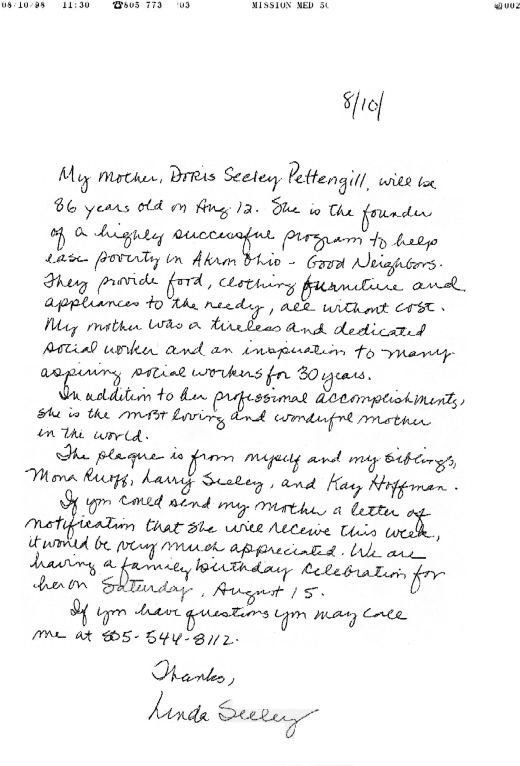 08/10/98 11:30 ☎805 773 03 MISSION MED 002
8/10/
My mother, Doris Seeley Pettengill, will be
86 years old on Aug 12. She is the founder
of a highly successful program to help
ease poverty in Akron Ohio - Good Neighbors.
They provide food, clothing furniture and
appliances to the needy, all without cost.
My mother was a tireless and dedicated
social worker and an inspiration to many
aspiring social workers for 30 years.
In addition to her professional accomplishments,
she is the most loving and wonderful mother
in the world.
The plaque is from myself and my siblings,
Mona Ruoff, Larry Seeley, and Kay Hoffman.
If you could send my mother a letter of
notification that she will receive this week,
it would be very much appreciated. We are
having a family birthday celebration for
her on Saturday, August 15.
If you have questions you may call
me at 805-544-8112.
Thanks,
Linda Seeley